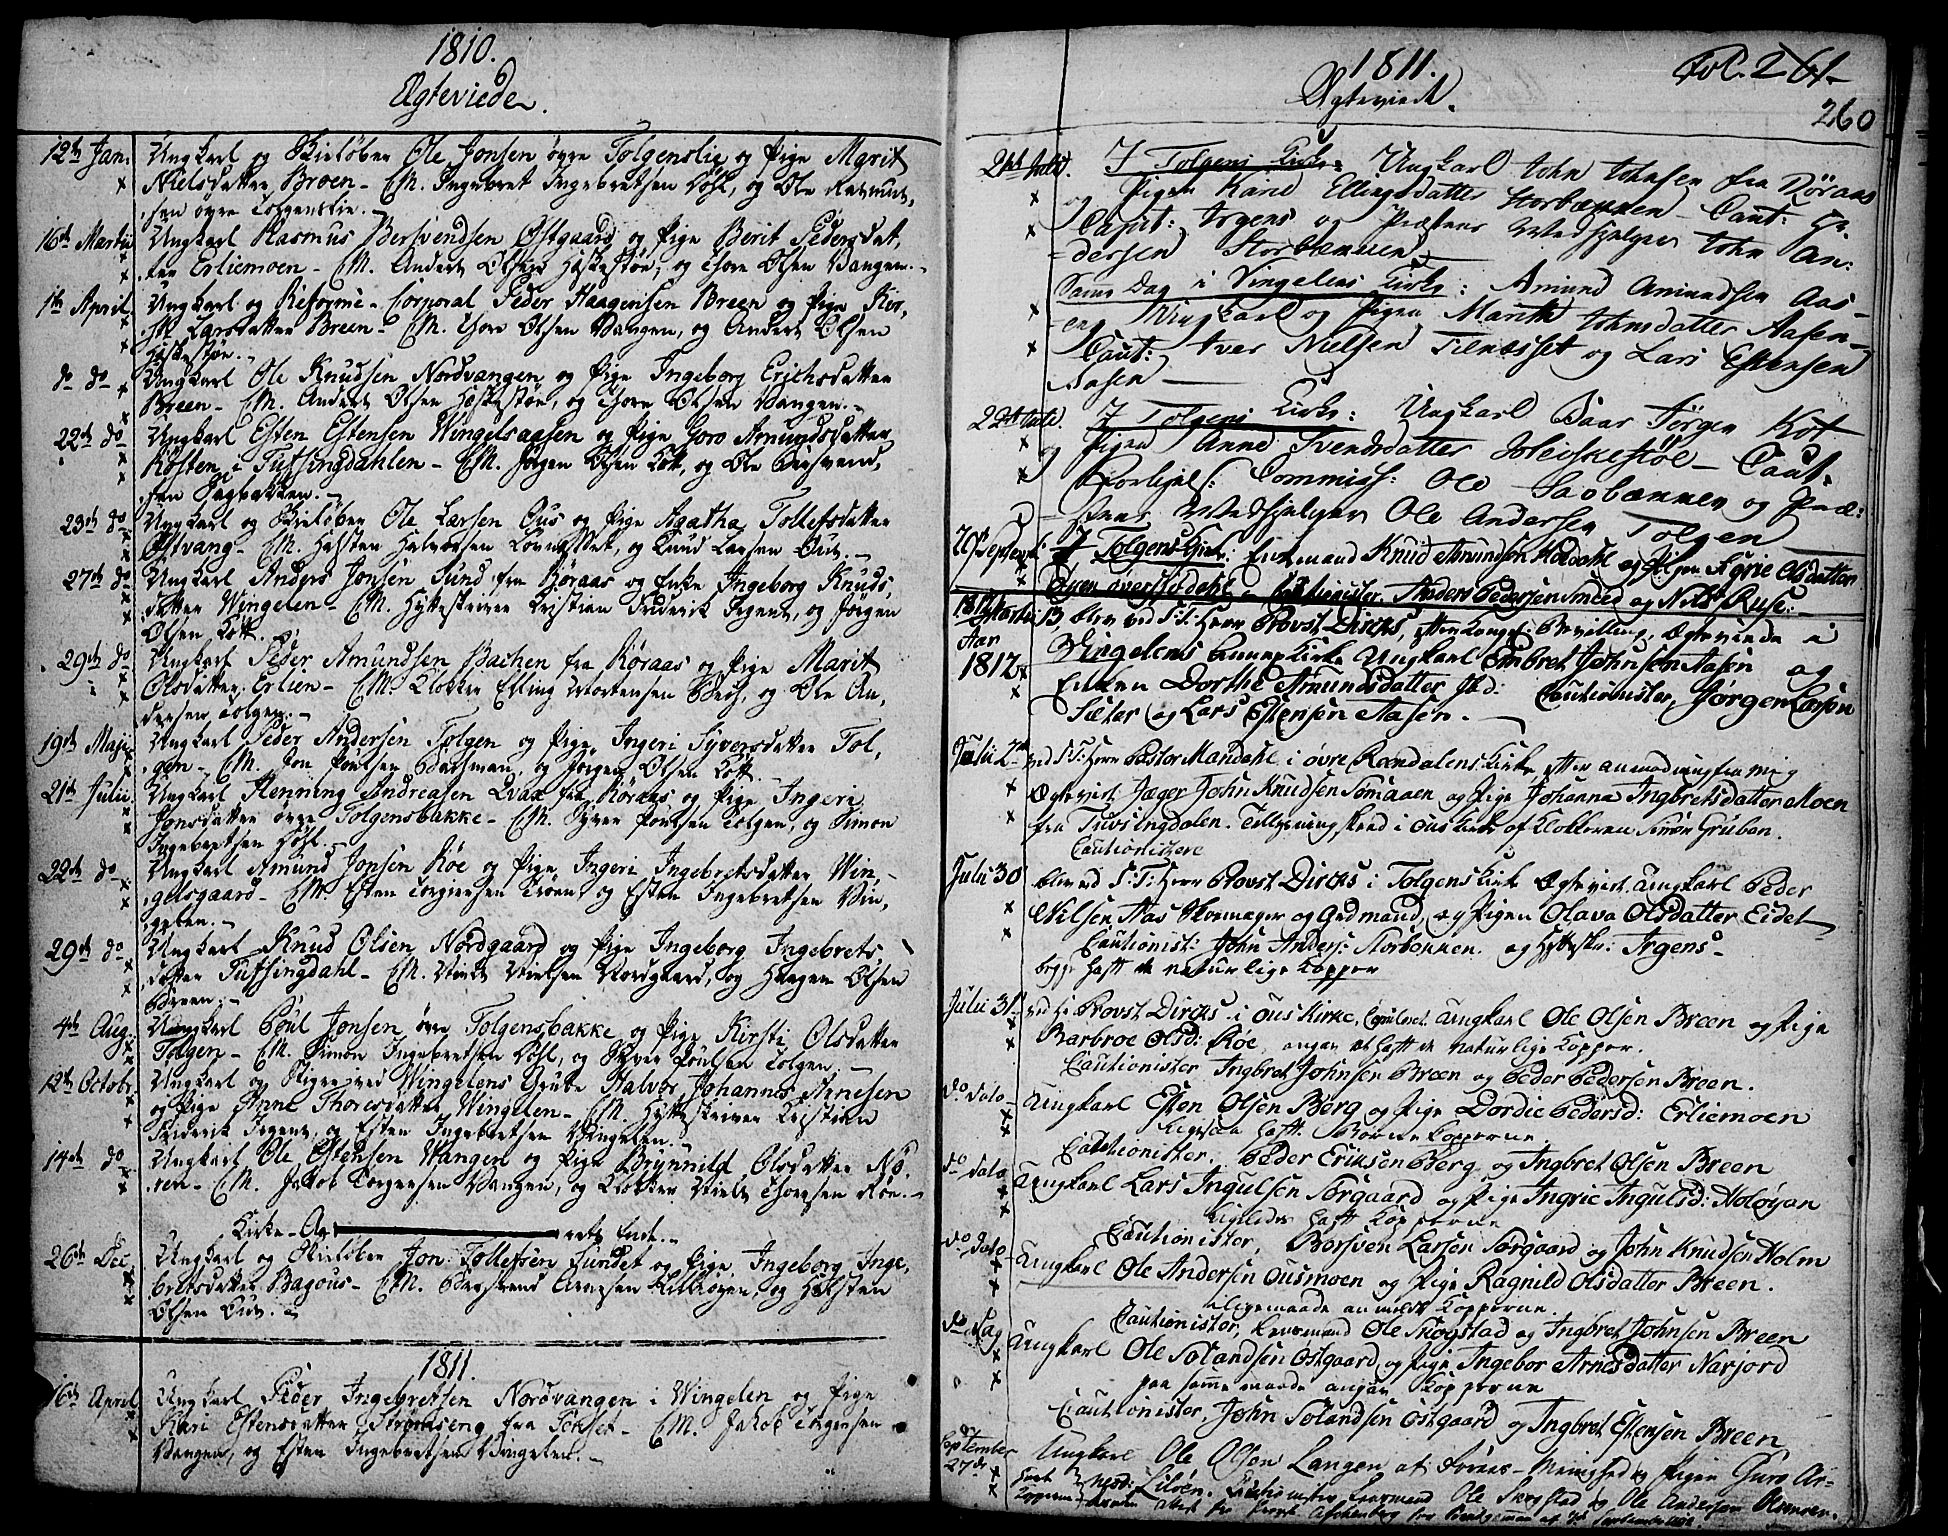 1810.
Ægteviede.
12te Jan. Ungkarl og Skieløber Ole Jonsen øvre Tolgenslie og Pige Marit
Nielsdatter Broen - CM. Ingebret Ingebretsen og Ole Rasmus,
sen øvre Tolgenslie.
16de Martii Ungkarl Rasmus Bersvendsen Østgaard og Pige Berit Pedersdat,
ter Erliemoen - CM. Anders Olsen Høskestøe, og Thore Olsen Vangen.
1te April Ungkarl og Reforme-Corporal Peder Haagensen Breen og Pige Kir,
sti Larsdatter Breen - CM. Thore Olsen Vangen, og Anders Olsen
Høskestøe.
do do Ungkarl Ole Knudsen Nordvangen og Pige Ingeborg Erichsdatter
Breen - CM. Anders Olsen Høskestøe, og Thore Olsen Vangen.
22de do Ungkarl Esten Estensen Wingelsaasen og Pige Goro Amundsdatter
Køsten i Tufsingdahlen - CM. Jørgen Olsen Kott, og Ole Bersvend,
sen Bagbakken.
23de do Ungkarl og Skieløber Ole Larsen Ous og Pige Agatha Tollefsdatter
Østvang - CM. Halsten Halvorsen og Knud Larsen Ous.
27de do Ungkarl Anders Jonsen Sund fra Røraas og Enke Ingeborg Knuds,
datter Wingelen - CM. Hytteskriver Christian Friderik Irgens, og Jørgen
Olsen Kott.
29de do Ungkarl Peder Amundsen Bachen fra Røraas og Pige Marit
Olsdatter Erlien - CM. Klokker Elling Mortensen og Ole An,
dersen Tolgen.
19de Maji Ungkarl Peder Andersen Tolgen og Pige Ingeri Syversdatter Tol,
gen - CM. Jon Poulsen og Jørgen Olsen Kott.
21de Julii Ungkarl Henning Andreasen Qvak fra Røraas og Pige Ingeri
Jonsdatter øvre Tolgensbakke - CM. Syver Poulsen Tolgen, og Simon
Ingebretsen
22de do Ungkarl Amund Jonsen Røe og Pige Ingeri Ingebretsdatter Win,
gelsgaard - CM. Esten Torgersen Troen og Esten Ingebretsen Vin,
gelen.
29de do Ungkarl Knud Olsen Nordgaard og Pige Ingeborg Ingebrets,
datter Tufsingdahl - CM. Niels Nielsen Nordgaard, og Haagen Olsen
Breen.
4de Aug. Ungkarl Poul Jonsen øvre Tolgensbakke og Pige Kirsti Olsdatter
Tolgen - CM. Simon Ingebretsen og Syver Poulsen Tolgen.
12te Octobr. Ungkarl og Stiger ved Wingelens Grube Halvor Johannes Arnesen
og Pige Anne Thoresdatter Wingelen - CM. Hytteskriver Christian
Friderik Irgens, og Esten Ingebretsen Vingelen.
14de do Ungkarl Ole Estensen Wangen og Pige Brynnild Olsdatter Nø,
ren - CM. Jakob Torgersen Vangen, og Klokker Niels Thoresen Røe.
Kirke-Aarets Ende.
26de Dec. Ungkarl og Skieløber Jon Tollefsen Sundet og Pige Ingeborg Inge,
bretsdatter Bagous - CM. Bersvend Arnesen og Halsten
Olsen Ous.
1811
16de April Ungkarl Peder Ingebretsen Nordvangen i Wingelen og Pige
Kari Estensdatter Strømseng fra Tønset - CM. Jakob Torgersen
Vangen, og Esten Ingebretsen Vingelen.
1811.
Ægteviede.
Fol. 261
260
21de Julii. I Tolgens Kirke: Ungkarl John Johnsen fra Røraas
og Pigen Karie Ellingsdatter Storbækken - Caut: Hr.
Capit: Irgens og Præstens Medhjelper John An:
dersen Storbækken
Samme Dag i Vingelens Kirke: Amund Amundsen Aas-
eng Ungkarl og Pigen Marith Johnsdatter Aasen -
Caut: Iver Nielsen Telnesset og Lars Estensen
Aasen
22de Julii. I Tolgens Kirke: Ungkarl Baar Jørgen Kot
og Pigen Anne Svendsdatter Høiskestøe - Caut.
Forligels: Commiss: Ole Saobækken og Præ:
stens Medhjelper Ole Andersen Tolgen
29 September I Tolgens Kirke: Enkemand Knud Amundsen Hordahl og Pigen Sigrie Olsdatter
Eggen Cautionister Anders Pedersen Smed og Nils Ruse.
Martii 13 Aar 1812 blev ved S:T: Herr Provst Dircks, efter Kongel: Bevilling, Ægteviede i
Vingelens Annexkirke Ungkarl Embret Johnsen Aasen og
Enken Dorthe Amundsdatter ibd: Cautionister, Jørgen Larsen
Sæter og Lars Estensen Aasen.
Julii 2de ved S:T: Herr Pastor Mandahl i øvre Rændalens Kirke, efter anmodning fra mig
Ægteviet Jæger John Knudsen Sømaaen og Pige Johanna Ingbretsdatter Moen
fra Tuvsingdalen. Tillysning skeed i Ous Kirke af Klokkeren Simon Gruben.
Cautionistere
Julii 30 blev ved S:T: Herr Provst Dircks i Tolgens Kirke Ægteviet Ungkarl Peder
Nilsen Aas Skomager og Gedmand, og Pigen Olava Olsdatter Eidet
Cautionist: John Anders: Storbekken. og Hytteskr: Irgens -
begge haft de naturlige Kopper
Julii 31 ved H: Provst Dircks i Ous Kirke, Copuleret Ungkarl Ole Olsen Breen og Pige
Barbroe Olsd: Røe, angav at haft de naturlige Kopper.
Cautionister Ingbret Johnsen Breen og Peder Pedersen Breen.
do dato Ungkarl Esten Olsen Berg og Pige Dordie Pedersd: Erliemoen
ligesaa haft Børnekopperne.
Cautionister, Peder Eriksen Berg og Ingbret Olsen Breen
do dato Ungkarl Lars Ingulsen Sørgaard og Pige Ingrie Ingulsd: Holøyan
ligeledes haft Kopperne
Cautionister, Borsven Larsen Sørgaard og John Knudsen Holm
do dato Ungkarl Ole Andersen Ousmoen og Pige Ragnild Olsdatter Breen.
iligemaade anmeldt Kopperne.
Cautionister, Lensmand Ole Skogstad og Ingbret Johnsen Breen
do Dag Ungkarl Ole Solandsen Ostgaard og Pige Ingebor Arnesdatter Narjord
paa samme maade angav Kopperne
Cautionister, John Solandsen Ostgaard og Ingbret Estensen Breen
September 27de Ungkarl Ole Olsen Langen af Røraas - Menighed og Pigen Guro Ar-
nesd: Liløen. Cautionister Lensmand Ole Skogstad og Ole Andersen Ousmoen.